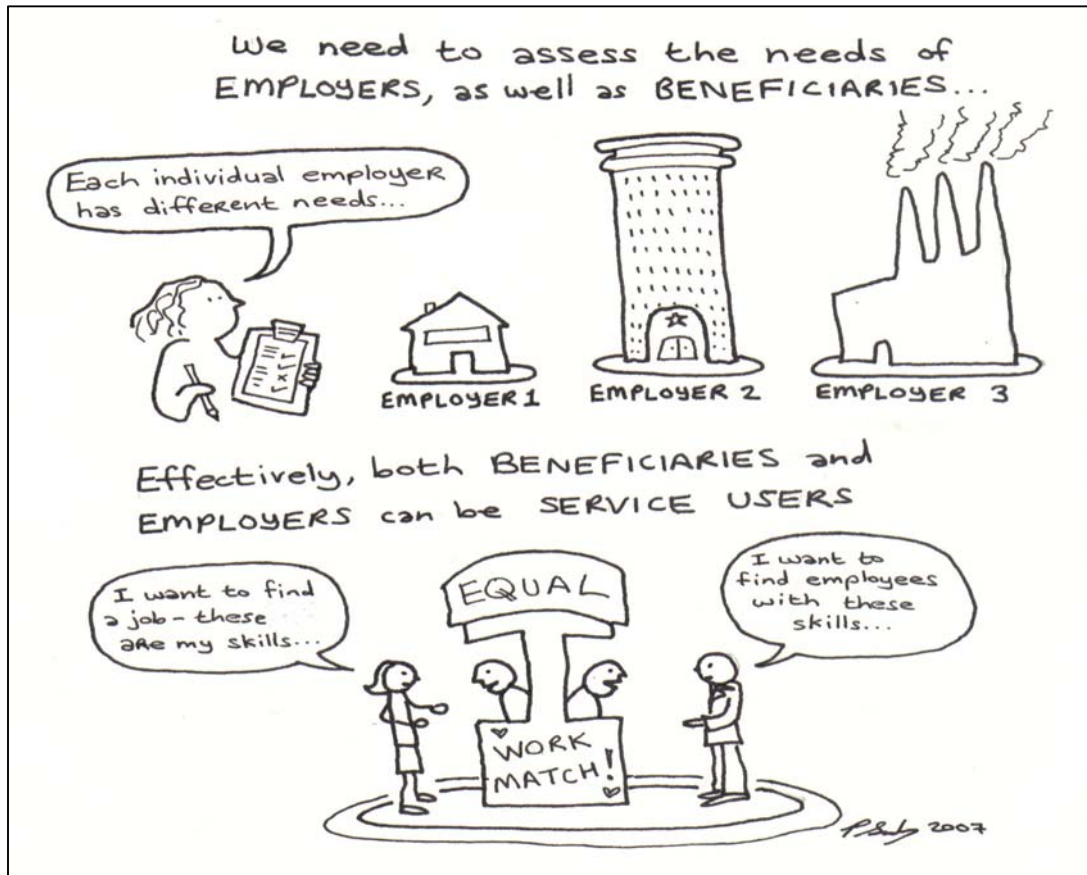 We need to assess the needs of
EMPLOYERS, as well as BENEFICIARIES...
Each individual employer
has different needs...
EMPLOYER 1
EMPLOYER 2
EMPLOYER 3
Effectively, both BENEFICIARIES and
EMPLOYERS can be SERVICE USERS
I want to find
a job - these
are my skills...
EQUAL
I want to
find employees
with these
skills...
WORK
MATCH!
2007